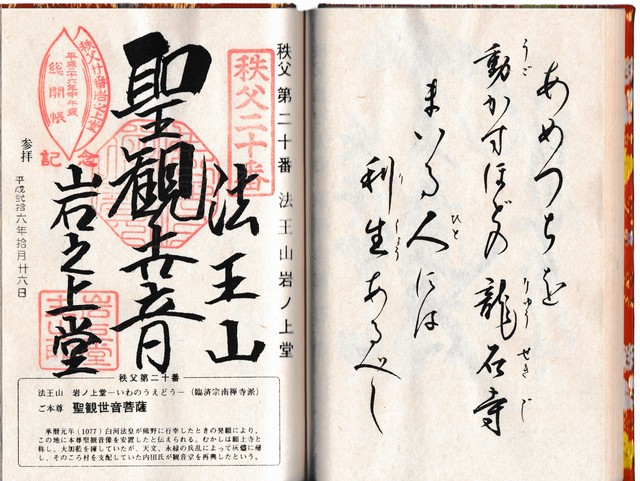 あめつちを
うご
動かすほどの龍石寺
りゅうせきじ
まいる人には
ひと
利生あるべし
りしょう
秩父第二十番 法王山岩ノ上堂
秩父二十番
法王山
聖観世音
岩之上堂
秩父廿番岩之上堂
平成二十六年甲午歳
総開帳
記念
参拝
平成弐拾六年拾月廿六日
秩父第二十番
法王山 岩ノ上堂―いわのうえどう―（臨済宗南禅寺派）
ご本尊 聖観世音菩薩
承暦元年（1077）白河法皇が熊野に行幸したときの発願により、
この地に本尊聖観音像を安置したと伝えられる。むかしは願上寺と
称し、大伽藍を擁していたが、天文、永禄の兵乱によって灰燼に帰
し、そのころ村を支配していた内田氏が観音堂を再興したという。